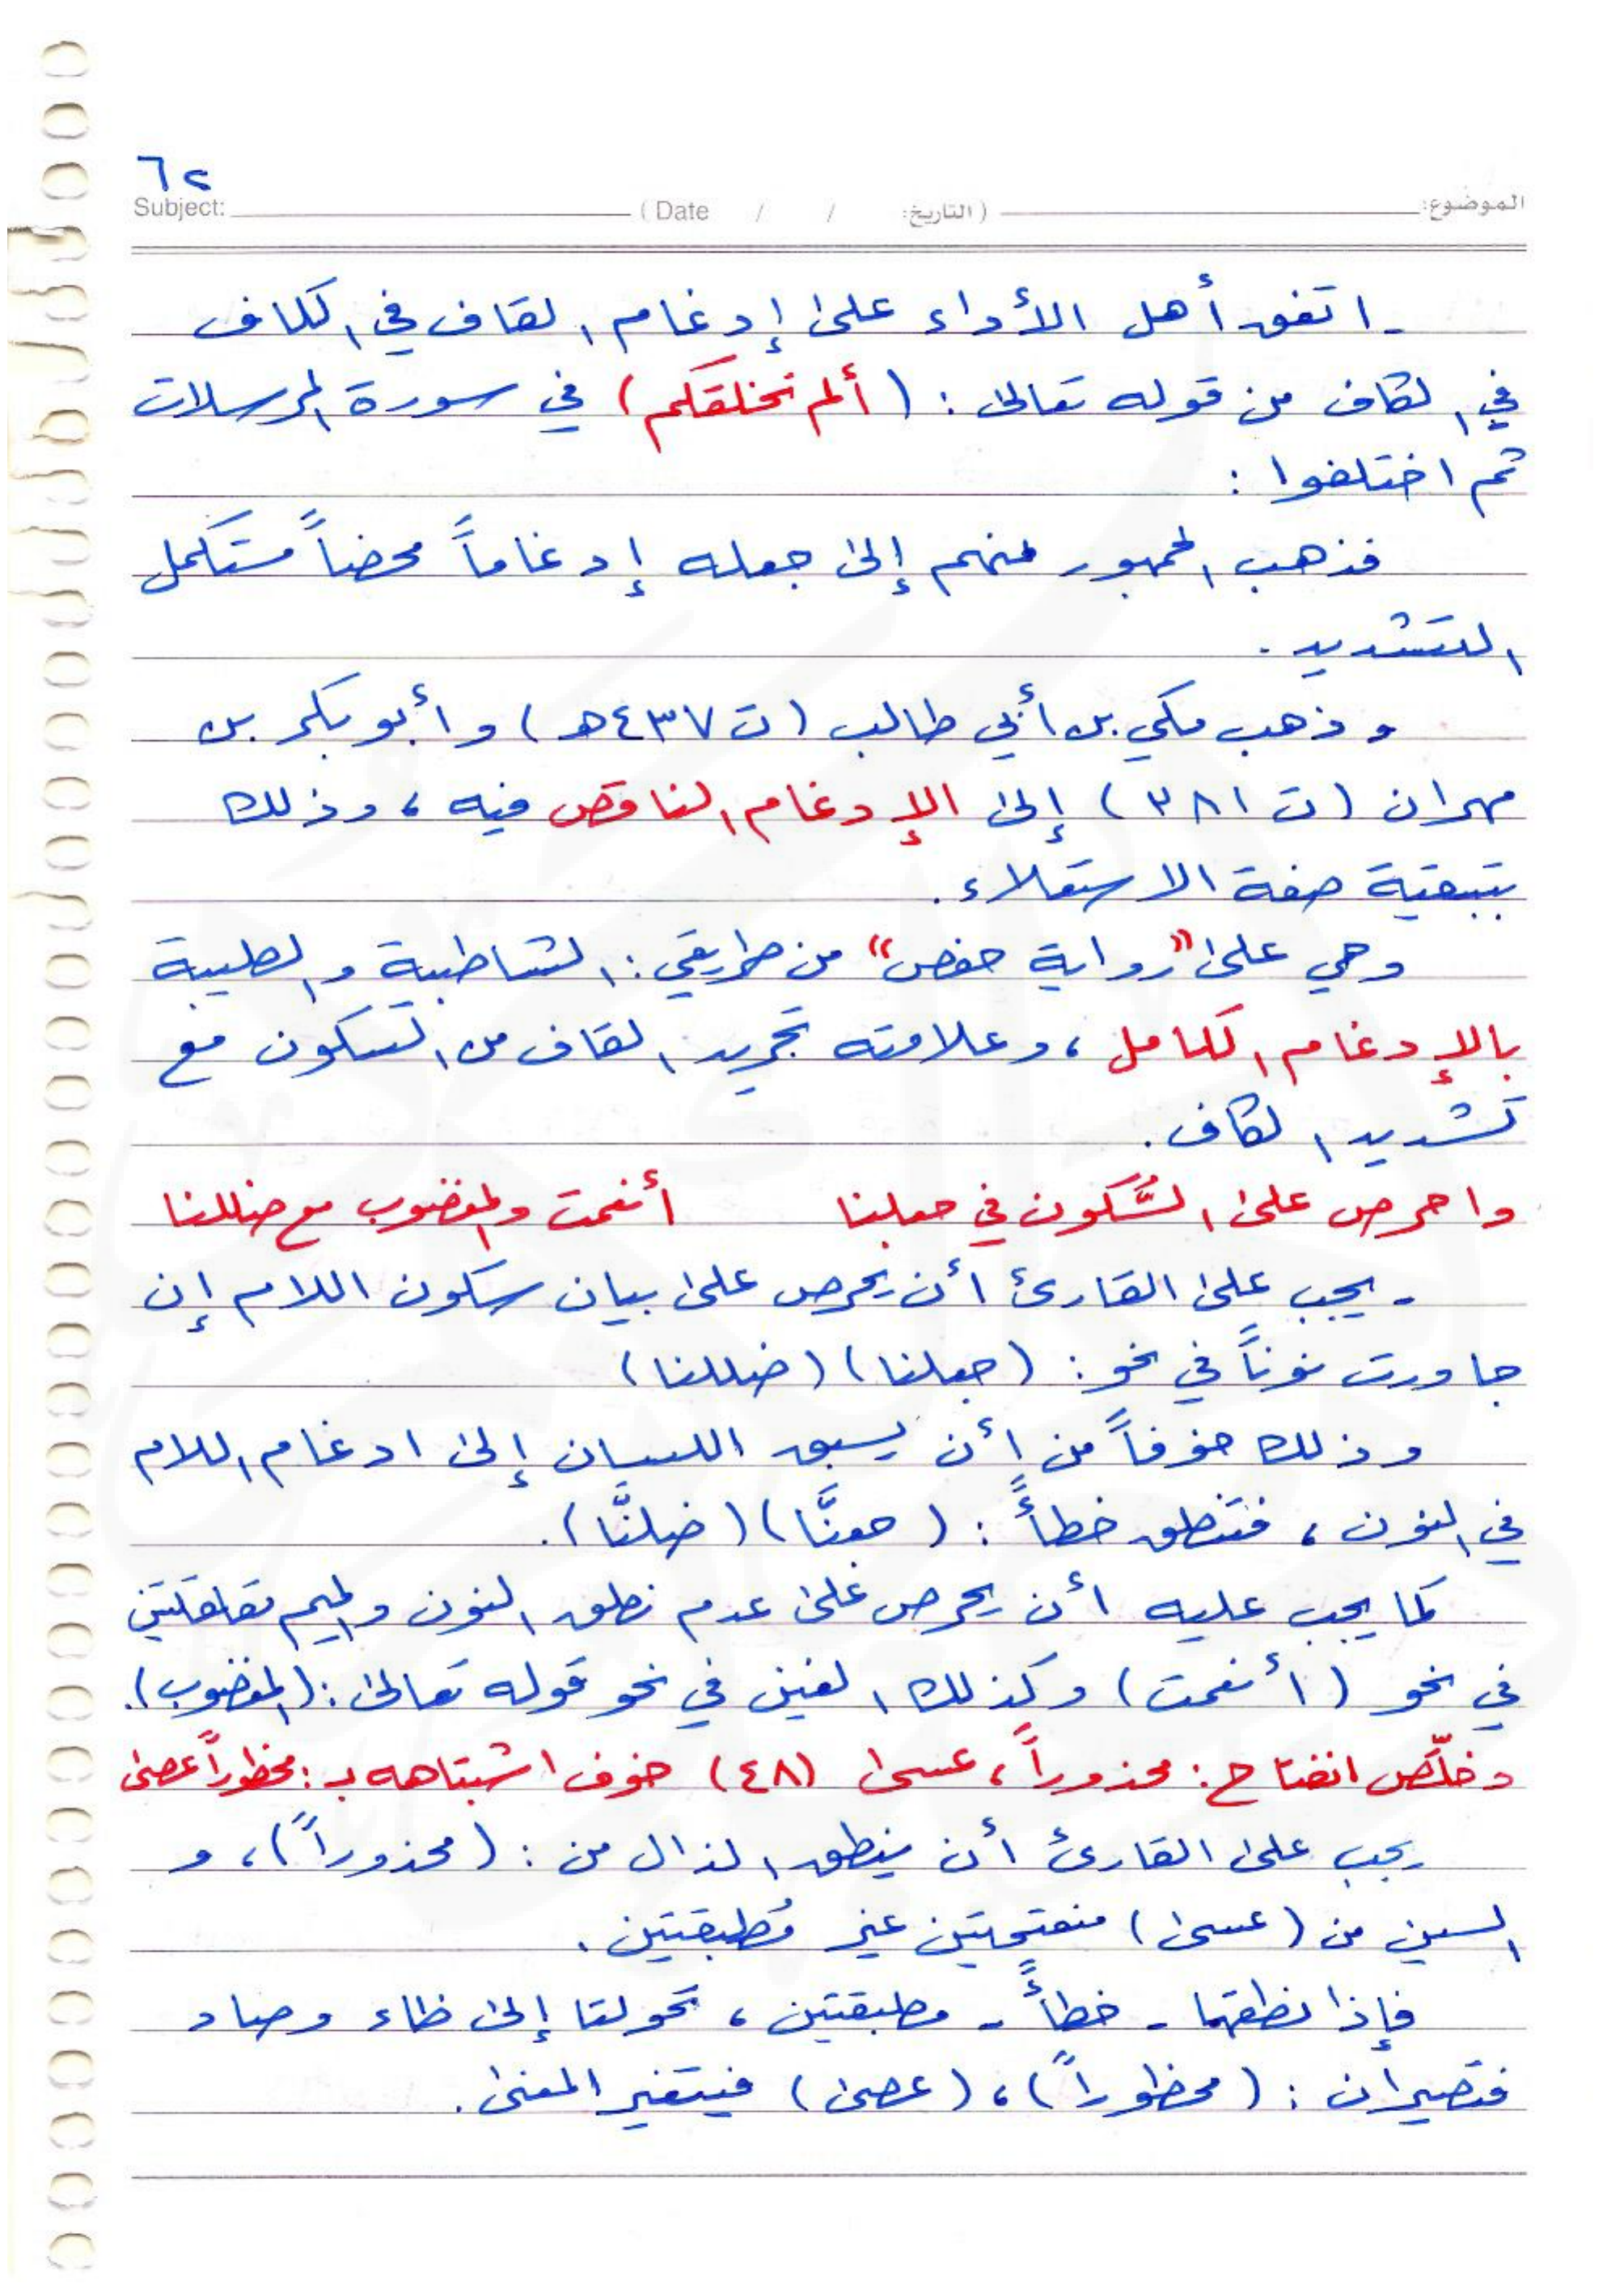 ٦٢
Subject: ( Date / / التاريخ: ) الموضوع:
- اتفق أهل الأداء على إدغام القاف في الكاف
في الكاف من قوله تعالى : (ألم نخلقكم) في سورة المرسلات
ثم اختلفوا :
فذهب الجمهور منهم إلى جعله إدغاماً محضاً مستكمل
التشديد .
وذهب مكي بن أبي طالب (ت ٤٣٧ هـ) وأبو بكر بن
مهران (ت ٣٨١) إلى الإدغام الناقص فيه ، وذلك
بتبقية صفة الاستعلاء .
وهي على "رواية حفص" من طريقي : الشاطبية والطيبة
بالإدغام الكامل ، وعلامته تجريد القاف من السكون مع
تشديد الكاف .
واحرص على السُّكون في جعلنا أنعمت والمغضوب مع ضللنا
- يجب على القارئ أن يحرص على بيان سكون اللام إن
جاورت نوناً في نحو : (جعلنا) (ضللنا)
وذلك خوفاً من أن يسبق اللسان إلى ادغام اللام
في النون ، فتنطق خطأً : (جعنَّا) (ضلنَّا) .
كما يجب عليه أن يحرص على عدم نطق النون والميم مقلقلتين
في نحو (أنعمت) وكذلك الغين في نحو قوله تعالى : (المغضوب) .
وخلّص انفتاح : محذوراً ، عسى (٤٨) خوف اشتباهه بـ : محظوراً عصى
يجب على القارئ أن ينطق الذال من : (محذوراً) ، و
السين من (عسى) منفتحتين غير مُطبقتين .
فإذا نطقهما - خطأً - مطبقتين ، تحولتا إلى ظاء وصاد
فتصيران : (محظوراً) ، (عصى) فيتغير المعنى .